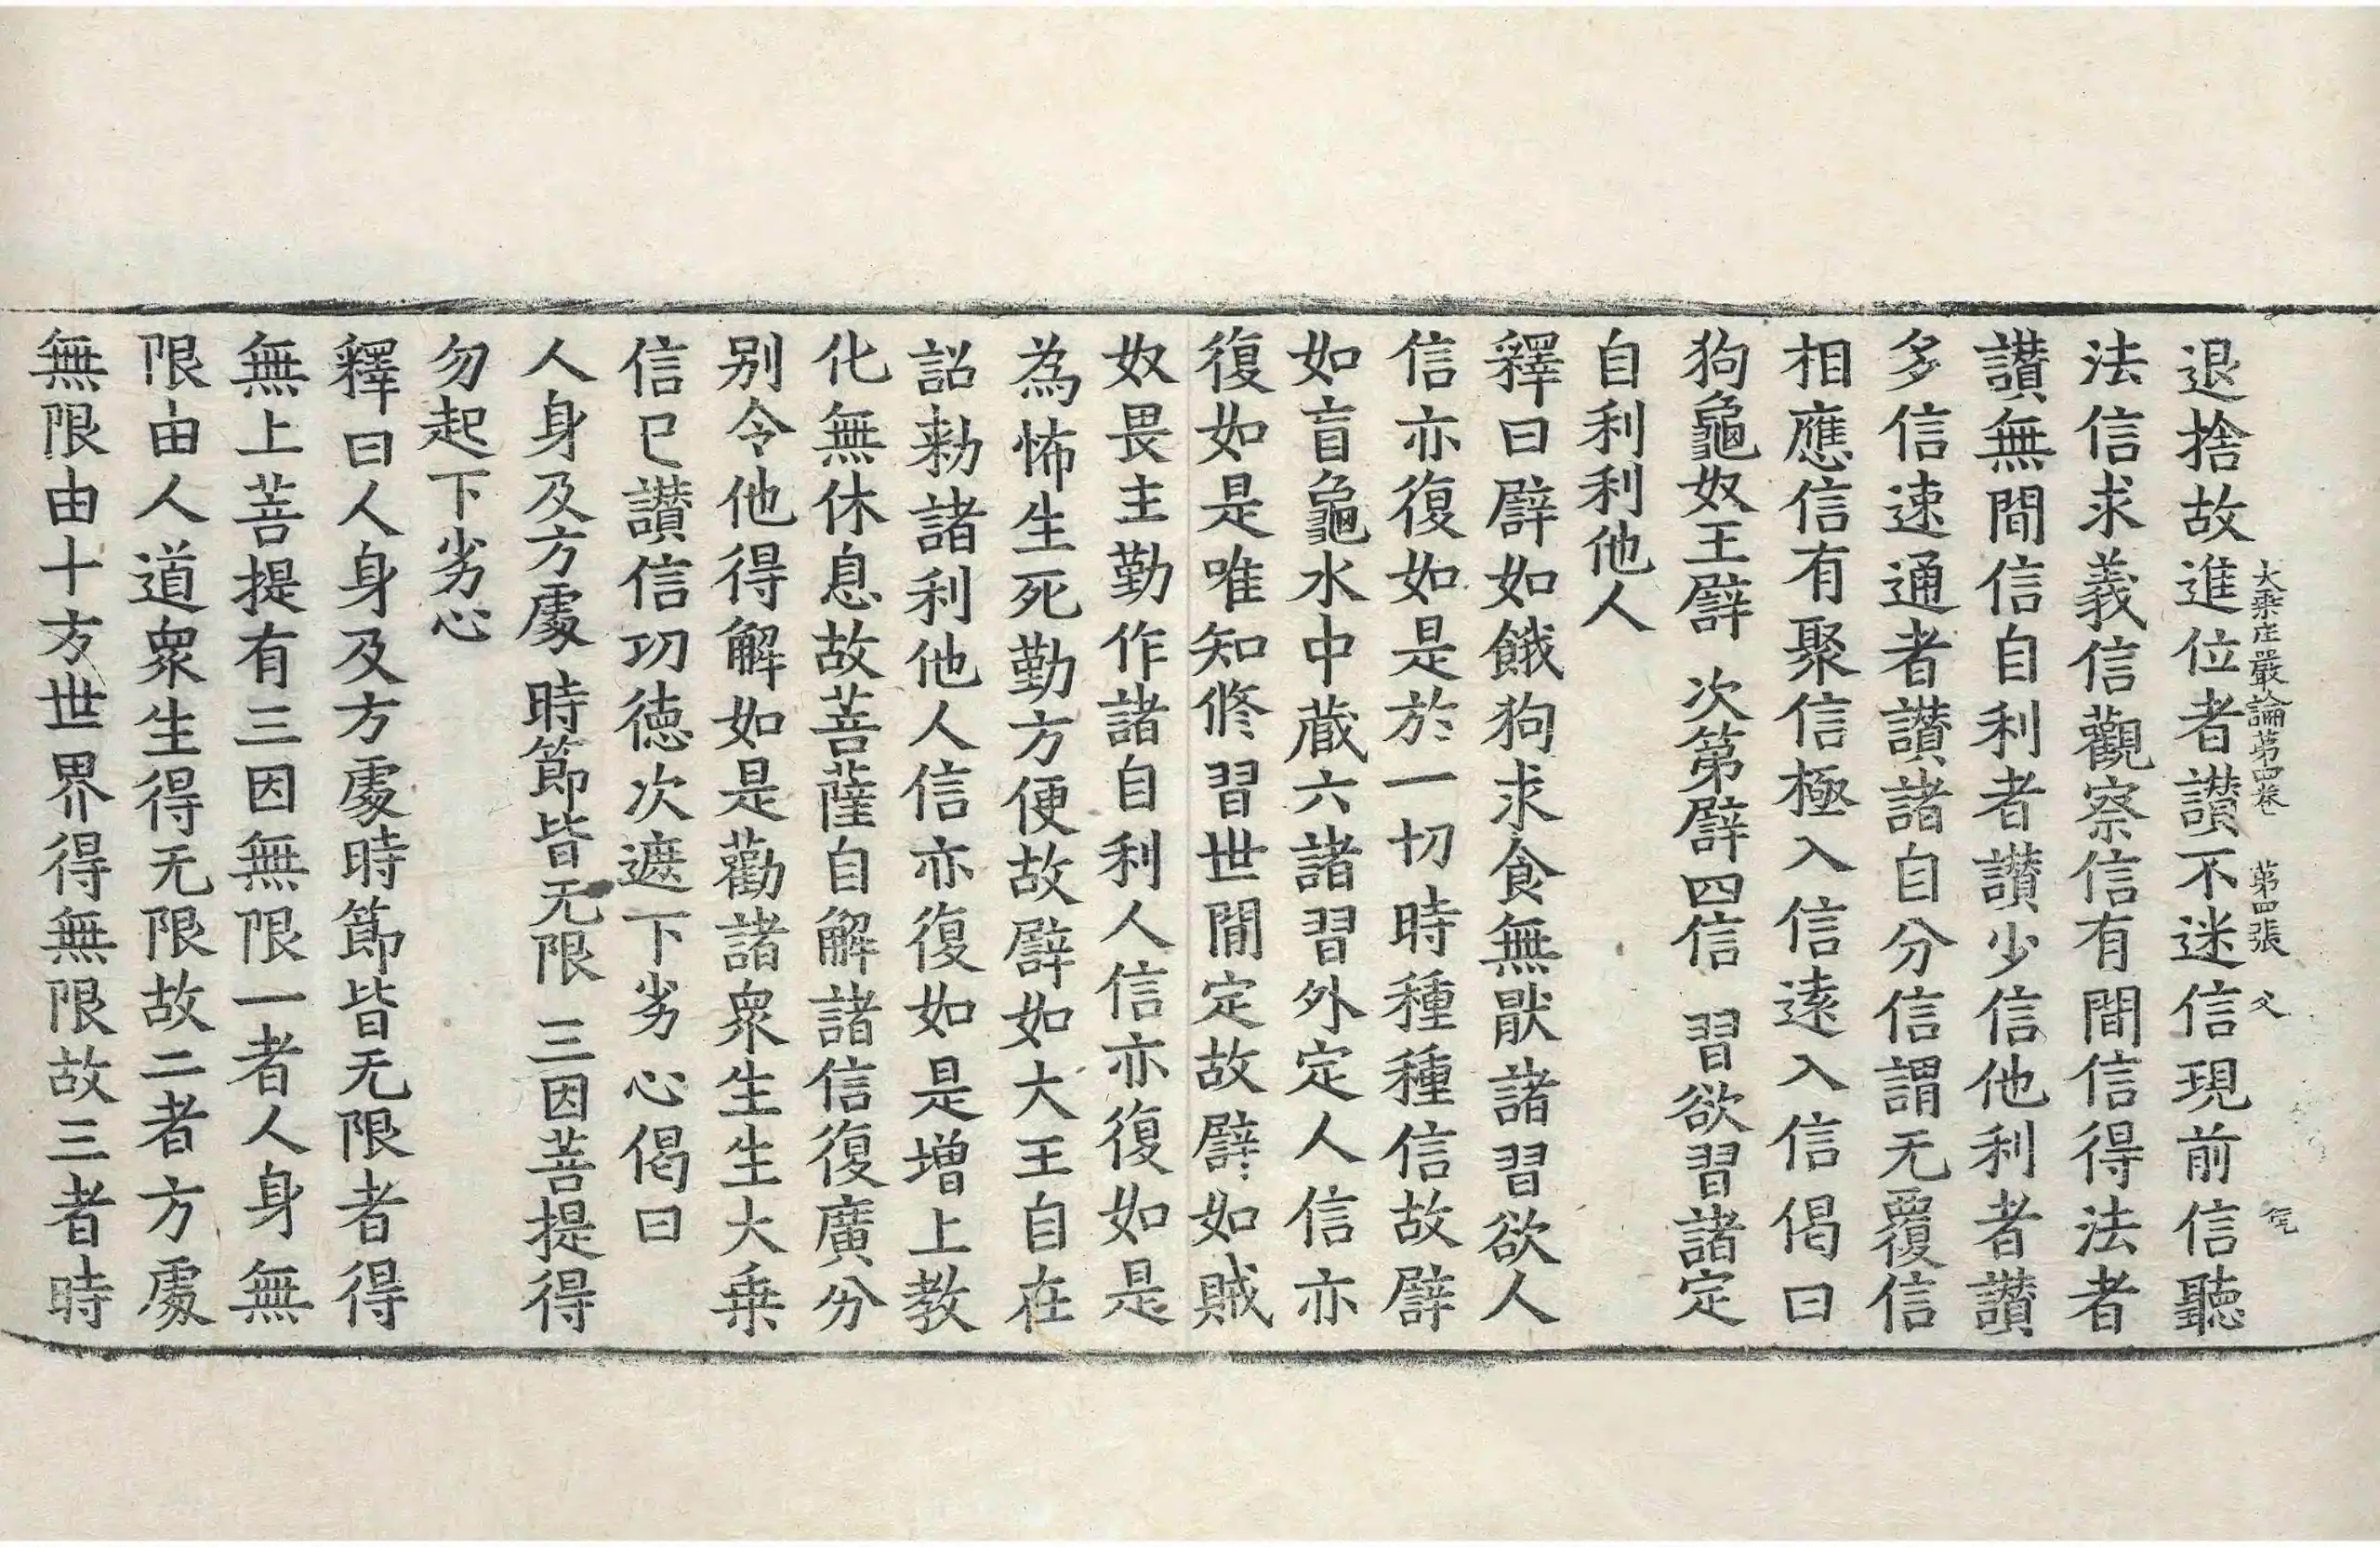 大乘庄嚴論第四卷 第四張 父
退捨故進位者讃不迷信現前信聽
法信求義信觀察信有間信得法者
讃無間信自利者讃少信他利者讃
多信速通者讃諸自分信謂无覆信
相應信有聚信極入信遠入信偈曰
狗龜奴王譬 次第譬四信 習欲習諸定
自利利他人
釋曰譬如餓狗求食無猒諸習欲人
信亦復如是於一切時種種信故譬
如盲龜水中蔵六諸習外定人信亦
復如是唯知修習世間定故譬如賊
奴畏主勤作諸自利人信亦復如是
為怖生死勤方便故譬如大王自在
詔勑諸利他人信亦復如是增上教
化無休息故菩薩自解諸信復廣分
别令他得解如是勸諸衆生生大乗
信已讃信功徳次遮下劣心偈曰
人身及方處 時節皆无限 三因菩提得
勿起下劣心
釋曰人身及方處時節皆无限者得
無上菩提有三因無限一者人身無
限由人道衆生得无限故二者方處
無限由十方世界得無限故三者時